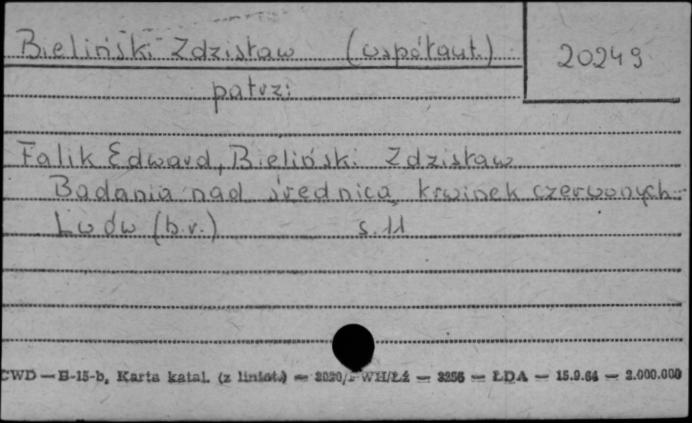 Bieliński Zdzisław (współaut.)
20249
patrz:
Falik Edward, Bieliński Zdzisław
Badania nad średnicą krwinek czerwonych.
Lwów (b.r.) s. 11
CWD — B-15-b, Karta katal. (z liniat.) — 2020/ WH/Łź — 3256 — ŁDA — 15.9.64 — 2.000.000